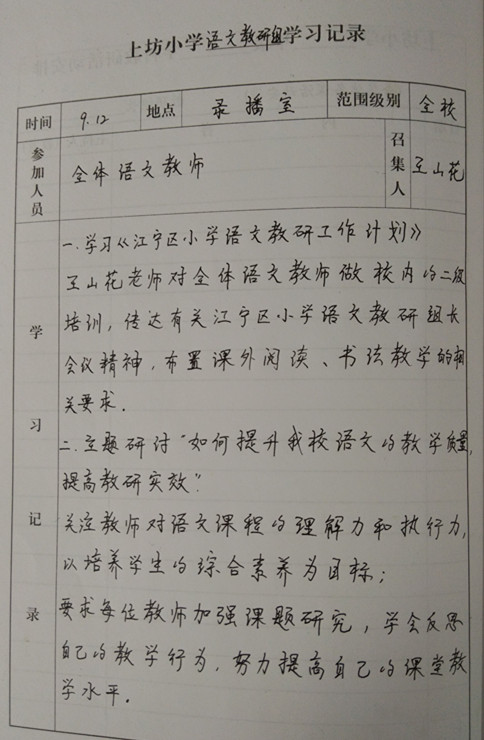 上坊小学语文教研组学习记录
时间 9.12 地点 录播室 范围级别 全校
参加人员 全体语文教师 召集人 王山花
学习记录
一.学习《江宁区小学语文教研工作计划》
王山花老师对全体语文教师做校内的二级
培训,传达有关江宁区小学语文教研组长
会议精神,布置课外阅读、书法教学的相
关要求.
二.主题研讨“如何提升我校语文的教学质量,
提高教研实效”.
关注教师对语文课程的理解力和执行力,
以培养学生的综合素养为目标;
要求每位教师加强课题研究,学会反思
自己的教学行为,努力提高自己的课堂教
学水平.